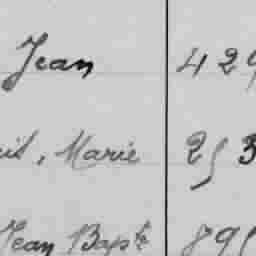 Jean 429
Marie 253
Jean Bapte 895